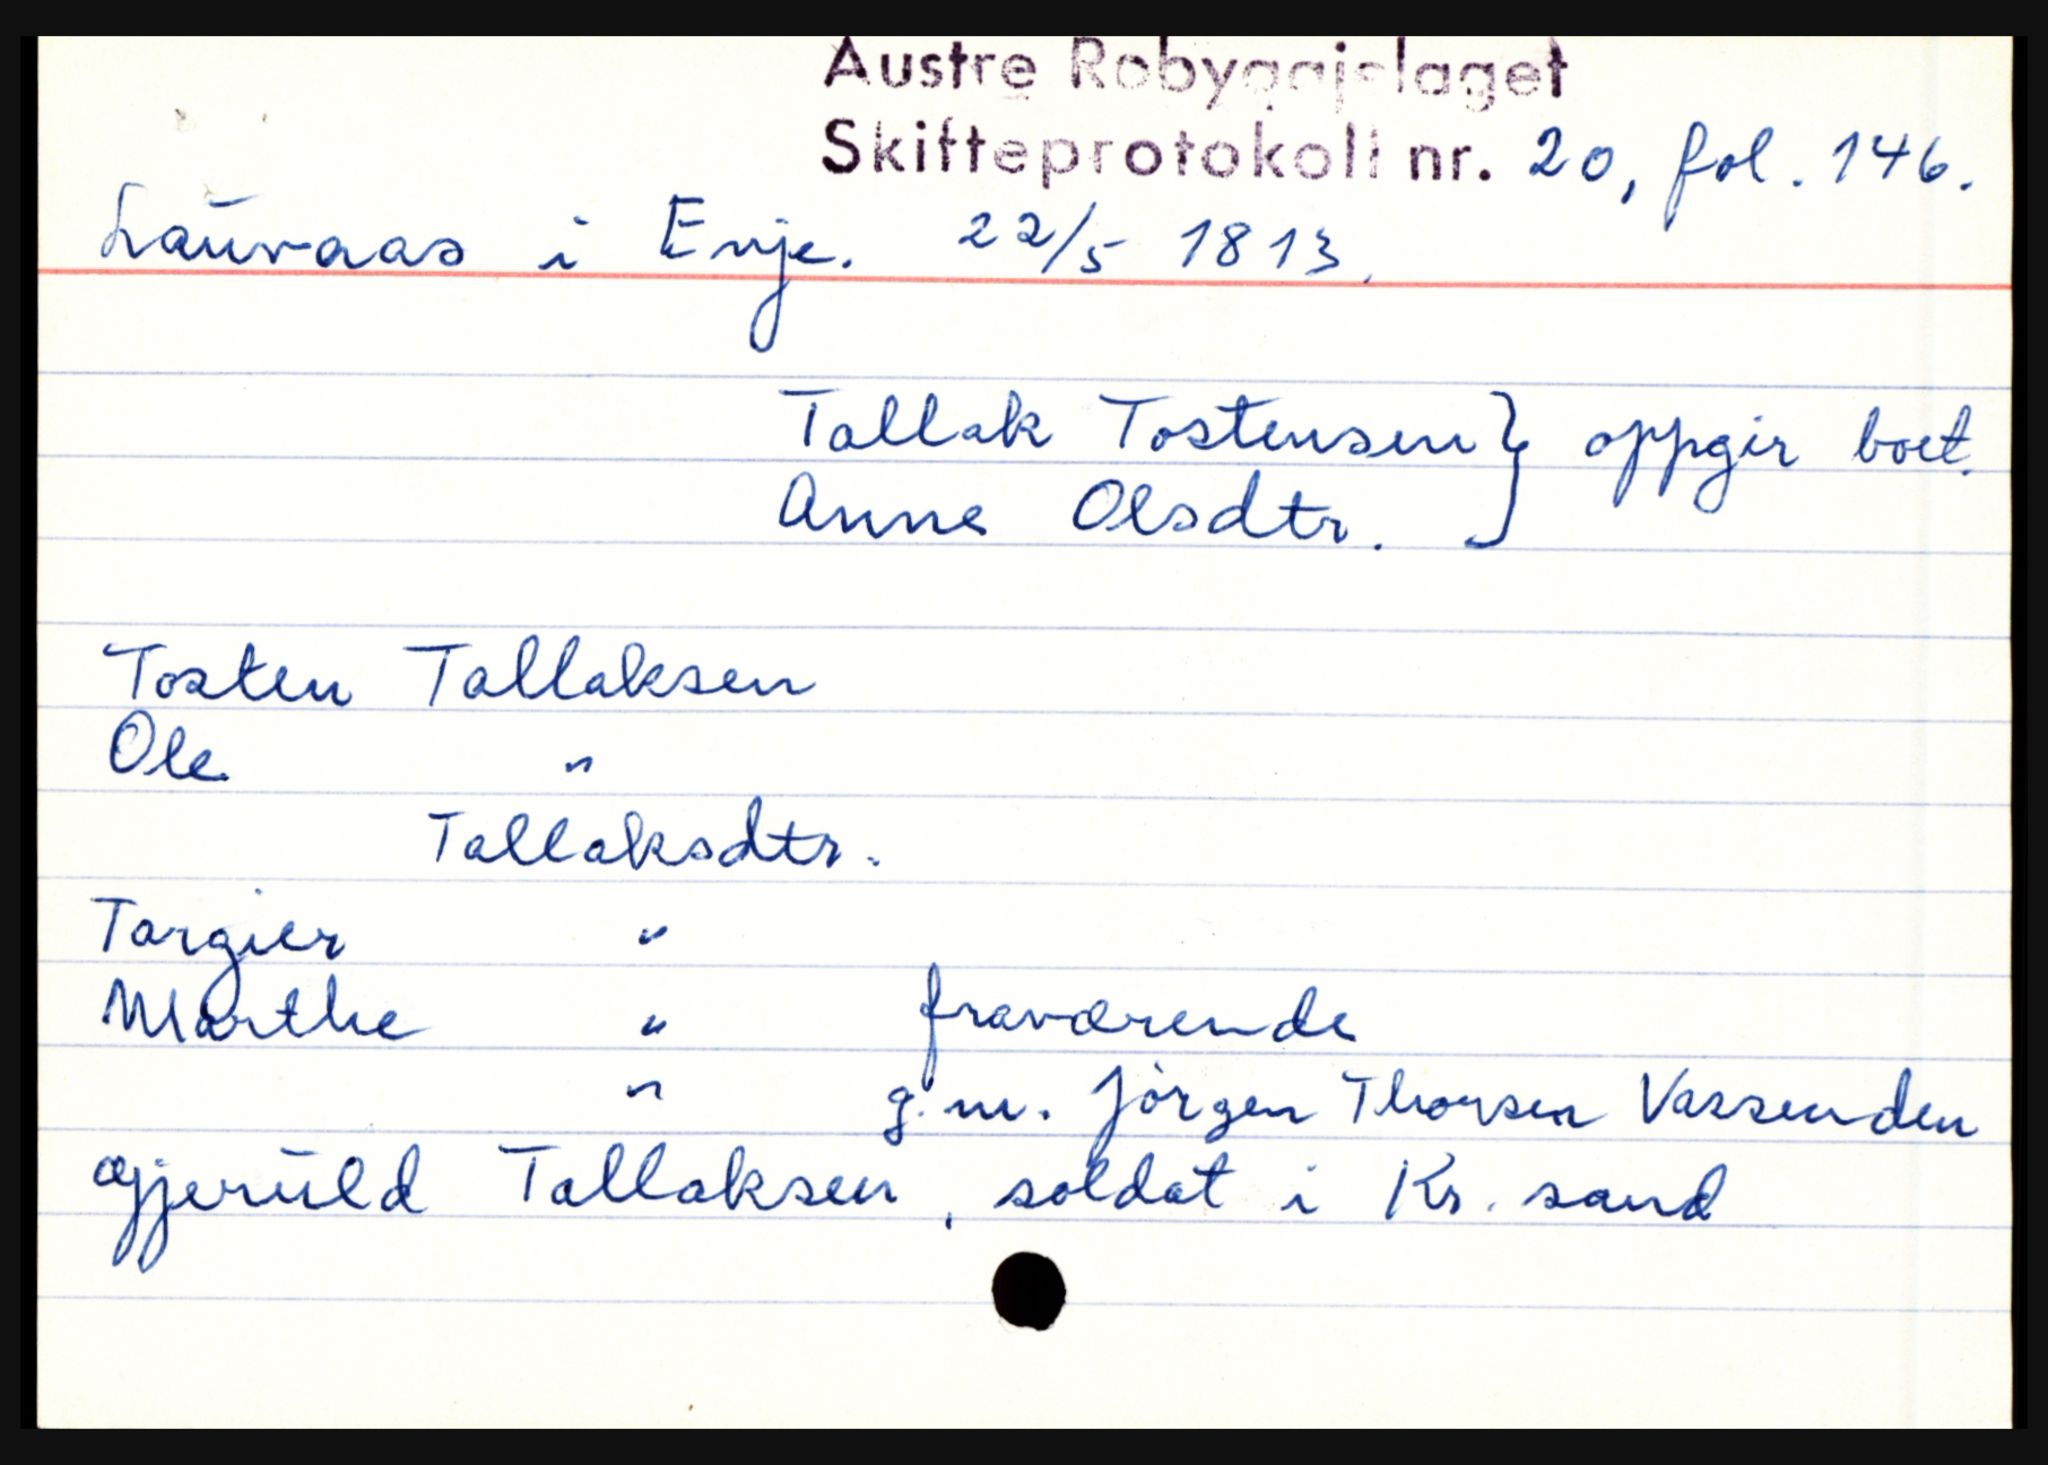 Austre Robyggjelaget
Skifteprotokoll nr. 20, fol. 146.
Lauvaas i Evje. 22/5 1813.
Tallak Tostensen } oppgir boet.
Anne Olsdtr.
Tosten Tallaksen
Ole "
Tallaksdtr.
Targier "
Marthe " fraværende
" g.m. Jörgen Thorsen Vassenden
Gjeruld Tallaksen, soldat i Kr. sand